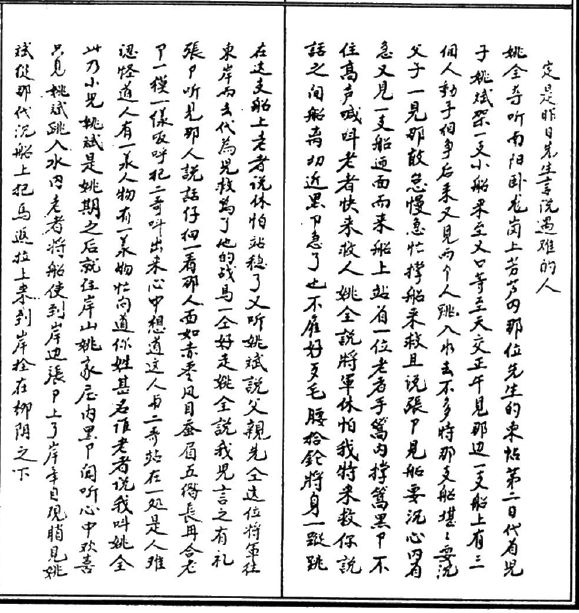 定是昨日先生言说遇难的人
姚全寺听南阳卧龙岗上若芦内那位先生的柬帖第二日代着児
子姚斌架一支小船果至义口等至天交正午见那边一支船上有二三
個人動手相争后来又见两个人跳入水去不多時那支船堪之要沉
父子一见那敢怠慢急忙撑船来救且说張卩见船要沉心内着
急又见一支船迎面而来船上站着一位老者手篙内撑篙黑卩不
住高声喊叫老者快来救人姚全説將軍休怕我特来救你説
話之间船离切近黑卩急了也不雇好歹毛腰拾鎗將身一蹤跳
在这支船上老者说休怕站穏了又听姚斌説父親先全这位将軍往
東岸而去代為児救写了他的战馬一仝好走姚全説我児言之有礼
張卩听见那人說話仔细一看那人面如赤枣凤目蚕眉五绺長冉合老
卩一模一樣哎呼把二哥叫出来心中想道这人与二哥站在一処是人难
認怪道人有一来人物有一美物忙向道你姓甚名谁老者说我叫姚全
此乃小児姚斌是姚期之后就住岸山姚家屯内黑卩闻听心中欢喜
只见姚斌跳入水内老者将船使到岸边張卩上了岸牟目现睄见姚
斌從那代沉船上把馬逛拉上来到岸拴在柳阴之下